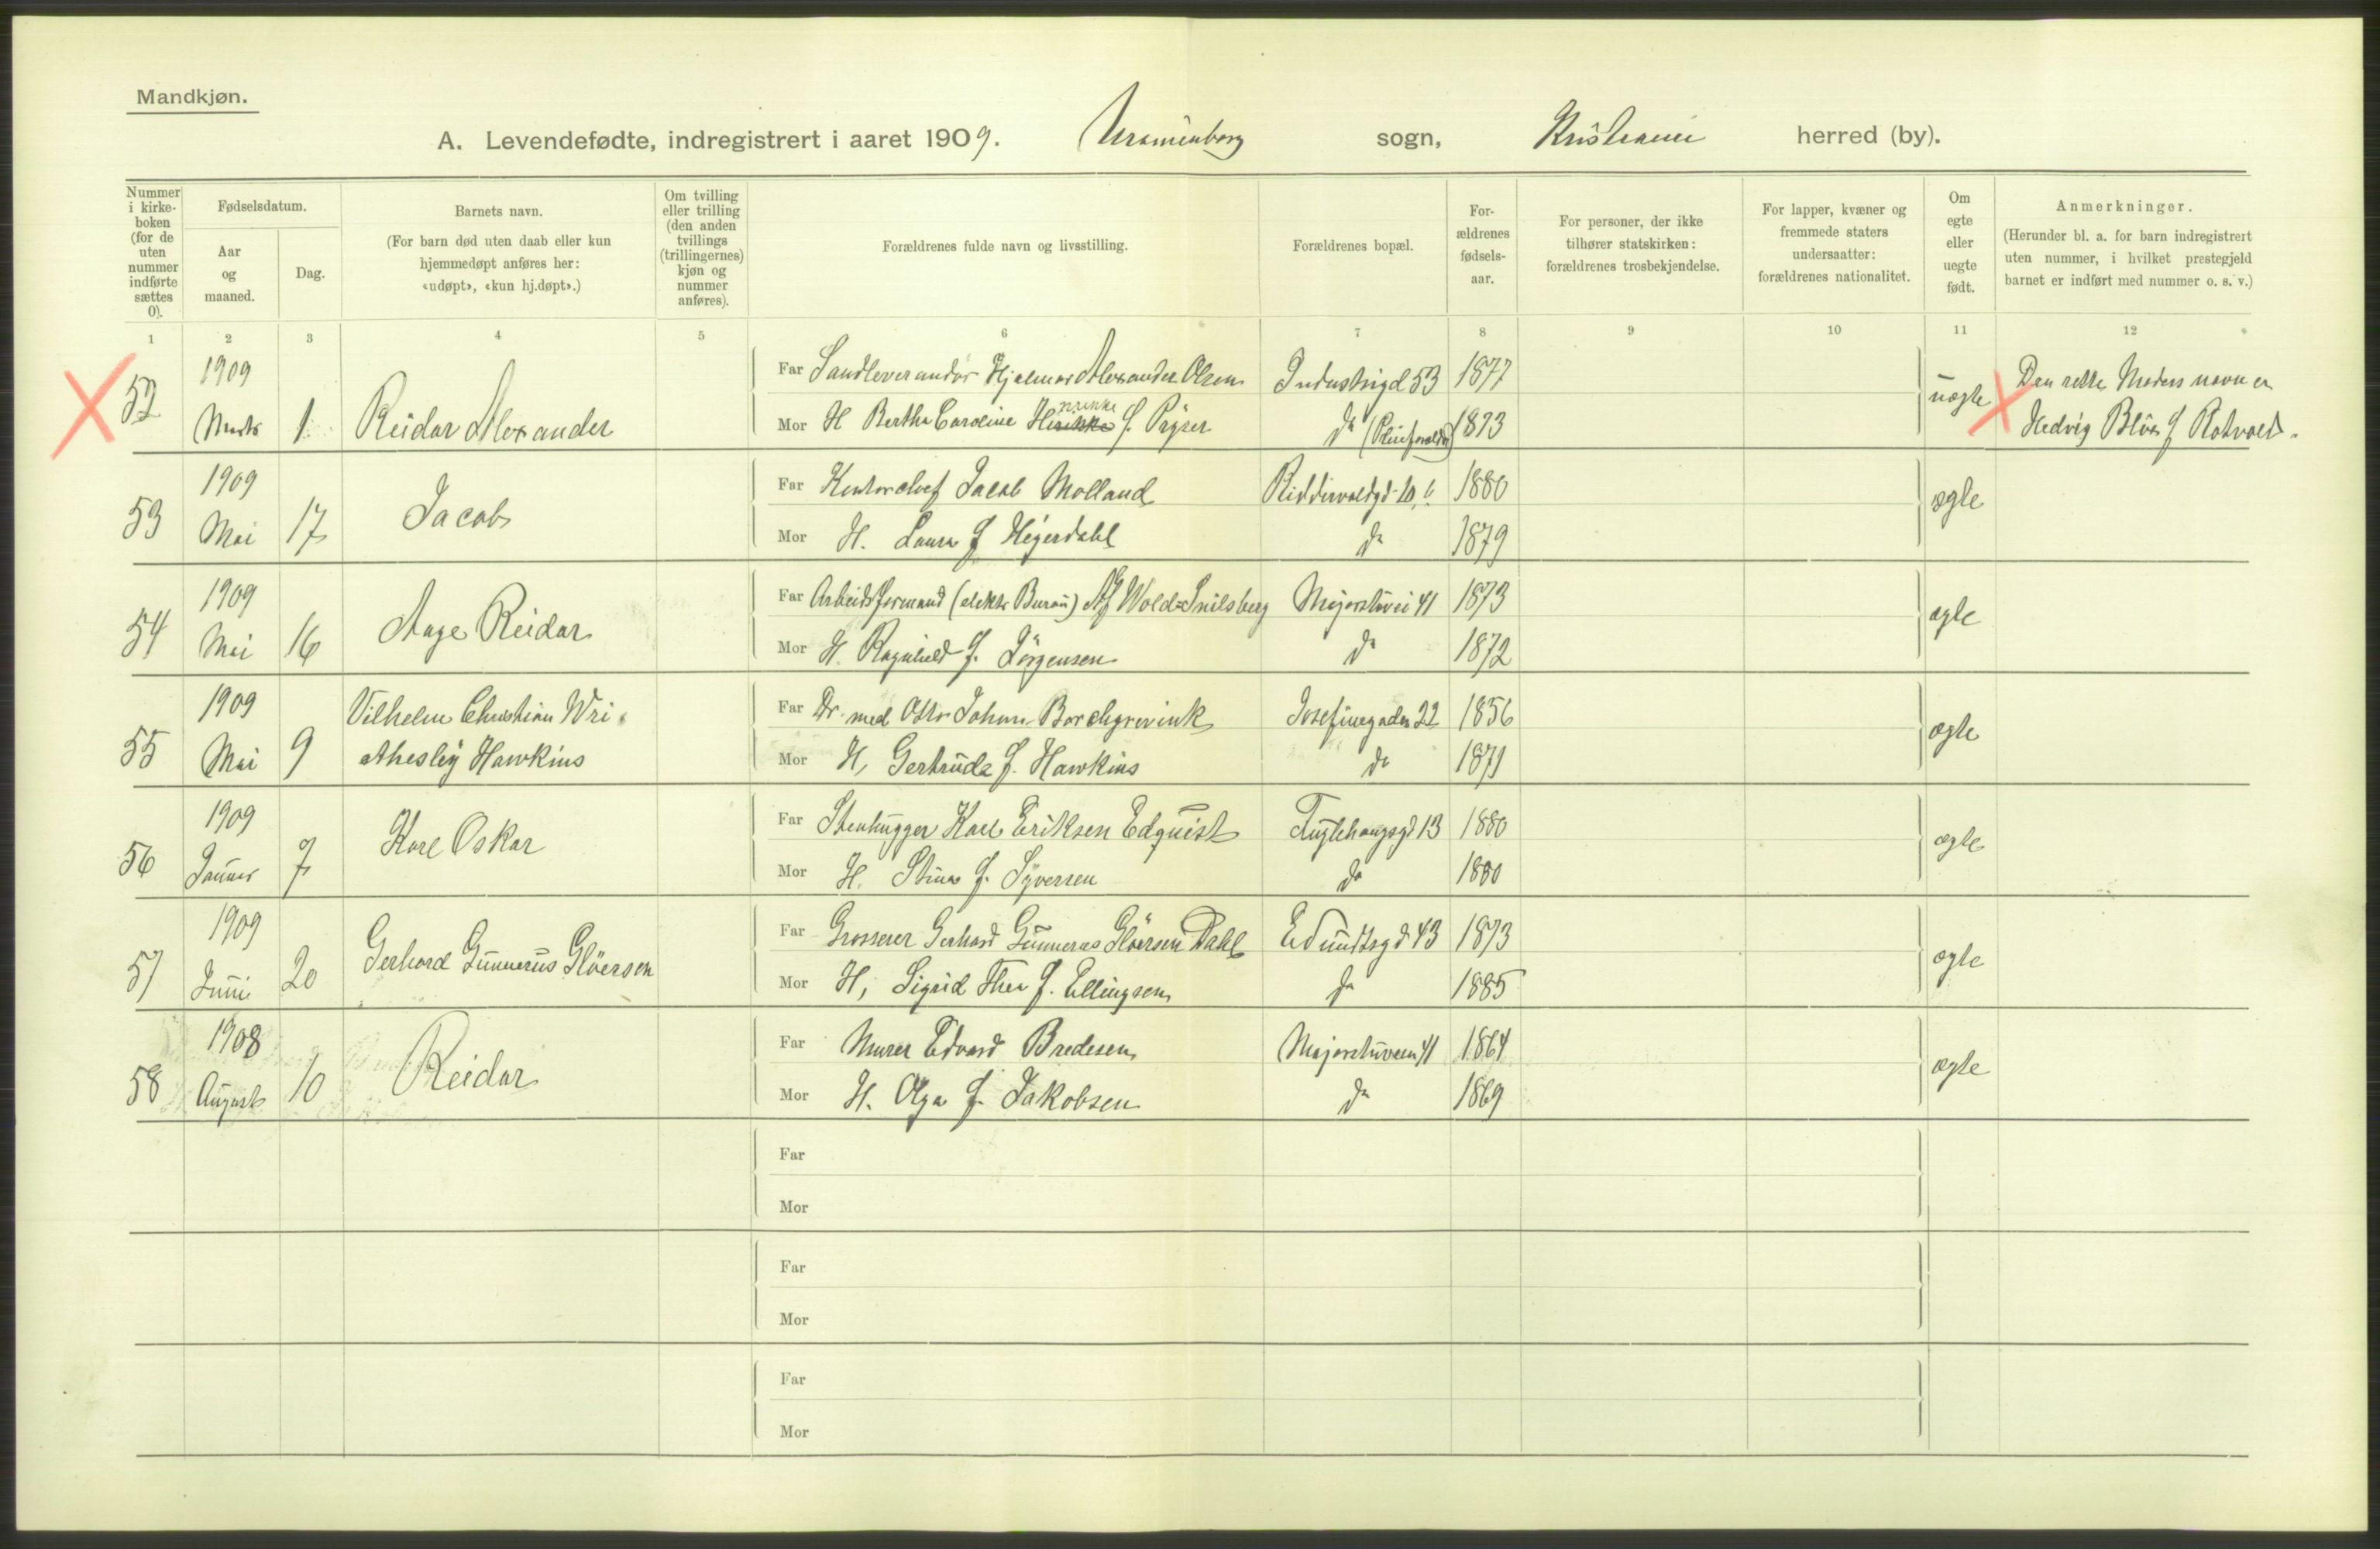 Mandkjøn.
A. Levendefødte, indregistrert i aaret 1909. Uranienborg sogn, Kristiania herred (by).
Nummer i kirke-boken (for de uten nummer indførte sættes 0).
Fødselsdatum.
Aar og maaned.
Dag.
Barnets navn.
(For barn død uten daab eller kun hjemmedøpt anføres her: «udøpt», «kun hj.døpt».)
Om tvilling eller trilling (den anden tvillings (trillingernes) kjøn og nummer anføres).
Forældrenes fulde navn og livsstilling.
Forældrenes bopæl.
For-ældrenes fødsels-aar.
For personer, der ikke tilhører statskirken: forældrenes trosbekjendelse.
For lapper, kvæner og fremmede staters undersaatter: forældrenes nationalitet.
Om egte eller uegte født.
Anmerkninger.
(Herunder bl. a. for barn indregistrert uten nummer, i hvilket prestegjeld barnet er indført med nummer o. s. v.)
1 2 3 4 5 6 7 8 9 10 11 12
52 1909 Marts 1 Reidar Alexander
Far Sandleverandør Hjalmar Alexander Olsen Industrigd 53 1877
Mor H Bertha Caroline Henrikke f. Pryser do (Pleieforældre) 1873
uægte
Den rette Moders navn er
Hedvig f Rotvold.
53 1909 Mai 17 Jacob
Far Kontorchef Jacob Molland Riddervoldgd 10 b 1880
Mor H. Laura f Heyerdahl do 1879
ægte
54 1909 Mai 16 Aage Reidar
Far Arbeidsformand (elektr Bureau) Wold-Snilsberg Majorstuvei 41 1873
Mor H. Ragnhild f. Jörgensen do 1872
ægte
55 1909 Mai 9 Vilhelm Christian Wri
athesley Hawkins
Far Dr. med Otto Johan Borchgrevink Josefinegaden 22 1856
Mor H, Gertrude f. Hawkins do 1871
ægte
56 1909 Januar 7 Kare Oskar
Far Stenhugger Karl Eriksen Edquist Fuglehaugsgd 13 1880
Mor H. Stina f. Syversen do 1880
ægte
57 1909 Juni 20 Gerhard Gunnerus Glöersen
Far Grosserer Gerhard Gunnerus Glöersen Dahl Eilert Sundtsgd 43 1873
Mor H, Sigrid Thea f. Ellingsen do 1885
ægte
58 1908 August 10 Reidar
Far Murer Edvard Bredesen Majorstuveien 41 1864
Mor H. Olga f. Jakobsen do 1869
ægte
Far
Mor
Far
Mor
Far
Mor